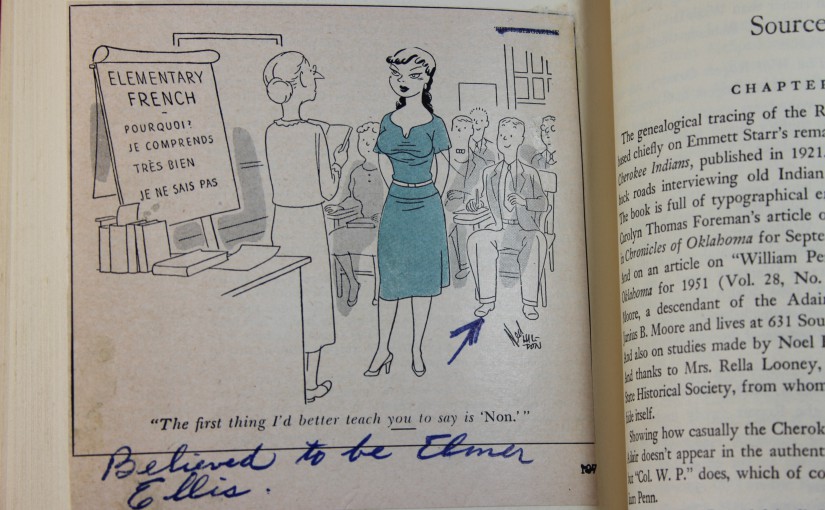 ELEMENTARY
FRENCH
POURQUOI?
JE COMPRENDS
TRÈS BIEN
JE NE SAIS PAS
"The first thing I'd better teach you to say is 'Non.'"
Believed to be Elmer
Ellis.
Source
CHAPTER
The genealogical tracing of the R
based chiefly on Emmett Starr's rema
Cherokee Indians, published in 1921.
back roads interviewing old Indian
The book is full of typographical e
Carolyn Thomas Foreman's article o
in Chronicles of Oklahoma for Septe
And on an article on "William Pe
Oklahoma for 1951 (Vol. 28, No.
Moore, a descendant of the Adai
Junius B. Moore and lives at 631 Sou
And also on studies made by Noel
And thanks to Mrs. Rella Looney,
State Historical Society, from whom
itself.
Showing how casually the Cherok
Adair doesn't appear in the authent
"Col. W. P." does, which of co
Penn.